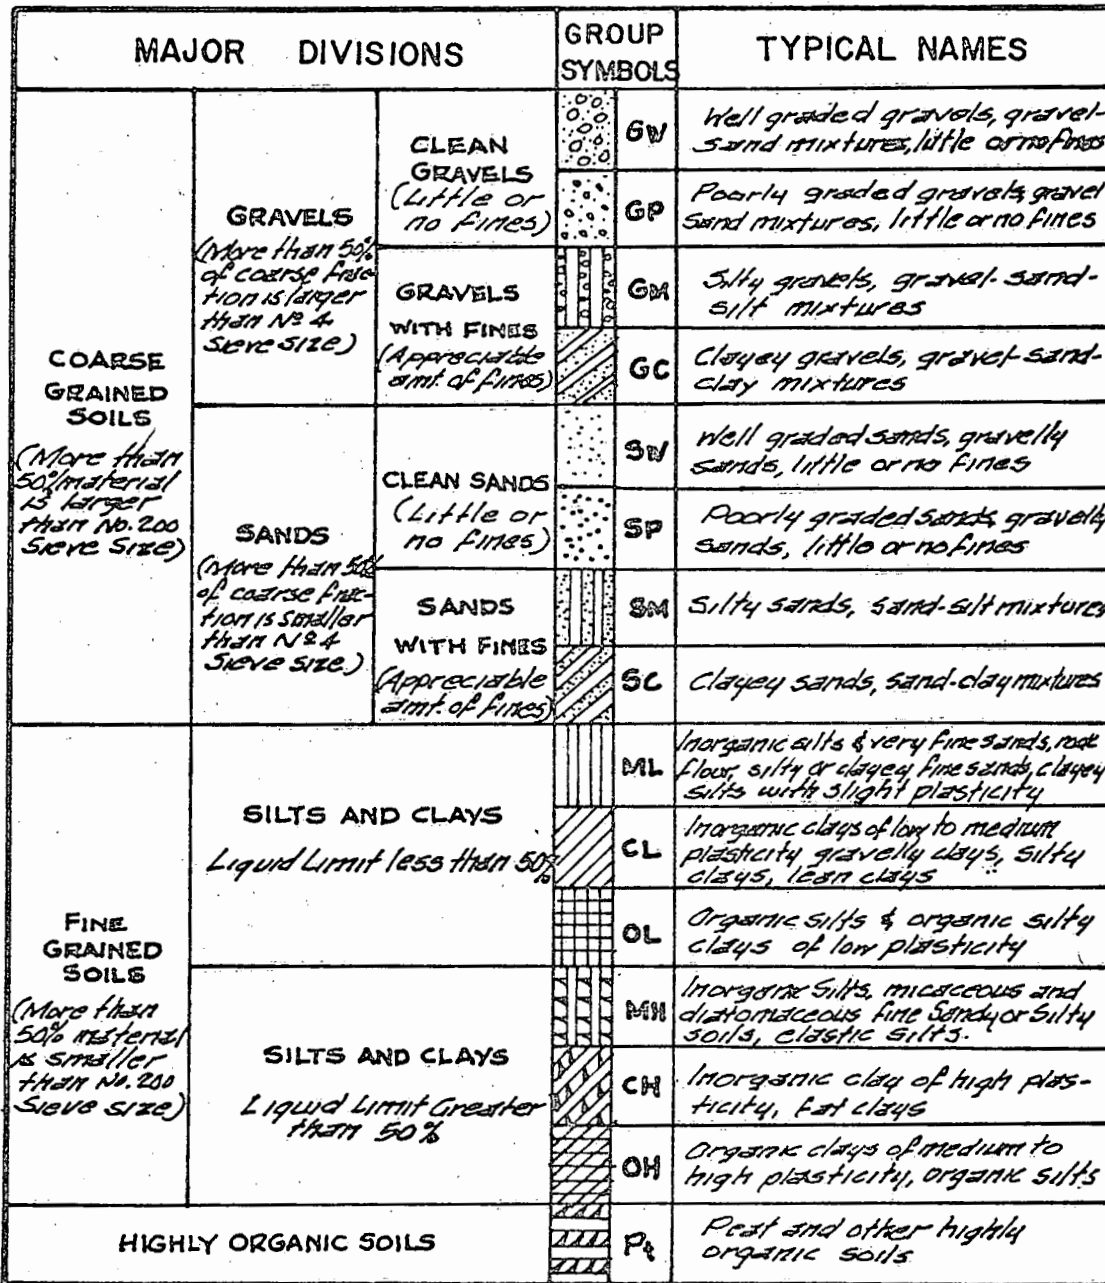 MAJOR DIVISIONS
GROUP
SYMBOLS
TYPICAL NAMES
COARSE
GRAINED
SOILS
(More than
50% material
is larger
than No. 200
Sieve Size)
GRAVELS
(More than 50%
of coarse frac-
tion is larger
than Nº 4
Sieve size)
CLEAN
GRAVELS
(Little or
no fines)
GW
Well graded gravels, gravel-
sand mixtures, little or no fines
GP
Poorly graded gravels, gravel
sand mixtures, little or no fines
GRAVELS
WITH FINES
(Appreciable
amt. of fines)
GM
Silty gravels, gravel-sand-
silt mixtures
GC
Clayey gravels, gravel-sand-
clay mixtures
SANDS
(More than 50%
of coarse frac-
tion is smaller
than Nº 4
Sieve size)
CLEAN SANDS
(Little or
no fines)
SW
Well graded sands, gravelly
sands, little or no fines
SP
Poorly graded sands, gravelly
sands, little or no fines
SANDS
WITH FINES
(Appreciable
amt. of fines)
SM
Silty sands, sand-silt mixtures
SC
Clayey sands, sand-clay mixtures
FINE
GRAINED
SOILS
(More than
50% material
is smaller
than No. 200
Sieve size)
SILTS AND CLAYS
Liquid Limit less than 50%
ML
Inorganic silts & very fine sands, rock
flour, silty or clayey fine sands, clayey
silts with slight plasticity
CL
Inorganic clays of low to medium
plasticity gravelly clays, silty
clays, lean clays
OL
Organic silts & organic silty
clays of low plasticity
SILTS AND CLAYS
Liquid Limit Greater
than 50%
MH
Inorganic Silts, micaceous and
diatomaceous fine Sandy or Silty
soils, elastic silts.
CH
Inorganic clay of high plas-
ticity, fat clays
OH
Organic clays of medium to
high plasticity, organic silts
HIGHLY ORGANIC SOILS
Pt
Peat and other highly
organic soils